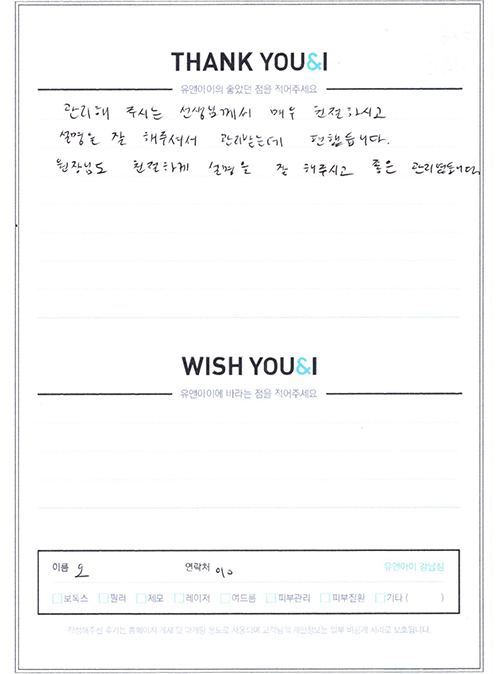 THANK YOU&I
유앤아이의 좋았던 점을 적어주세요
관리해 주시는 선생님께서 매우 친절하시고
설명을 잘 해주셔서 관리받는데 편했습니다.
원장님도 친절하게 설명을 잘 해주시고 좋은 관리였습니다.
WISH YOU&I
유앤아이에 바라는 점을 적어주세요
이름 오 연락처 010 유앤아이 강남점
보톡스 필러 제모 레이저 여드름 피부관리 피부질환 기타 ( )
작성해주신 후기는 홈페이지 게재 및 마케팅 용도로 사용되며 고객님의 개인정보는 일부 비공개 처리로 보호됩니다.